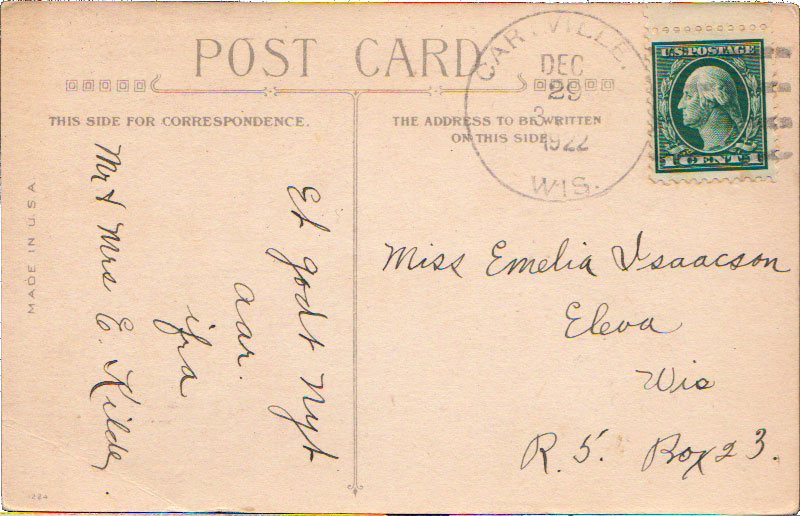 POST CARD
THIS SIDE FOR CORRESPONDENCE.
THE ADDRESS TO BE WRITTEN
ON THIS SIDE
DEC
29
3
1922
WIS.
U.S. POSTAGE
1 CENT 1
MADE IN U.S.A
Et godt Nyt
aar.
ifra
Mr & Mrs E. Kilde
Miss Emelia Isaacson
Eleva
Wis
R. 5. Box 23.